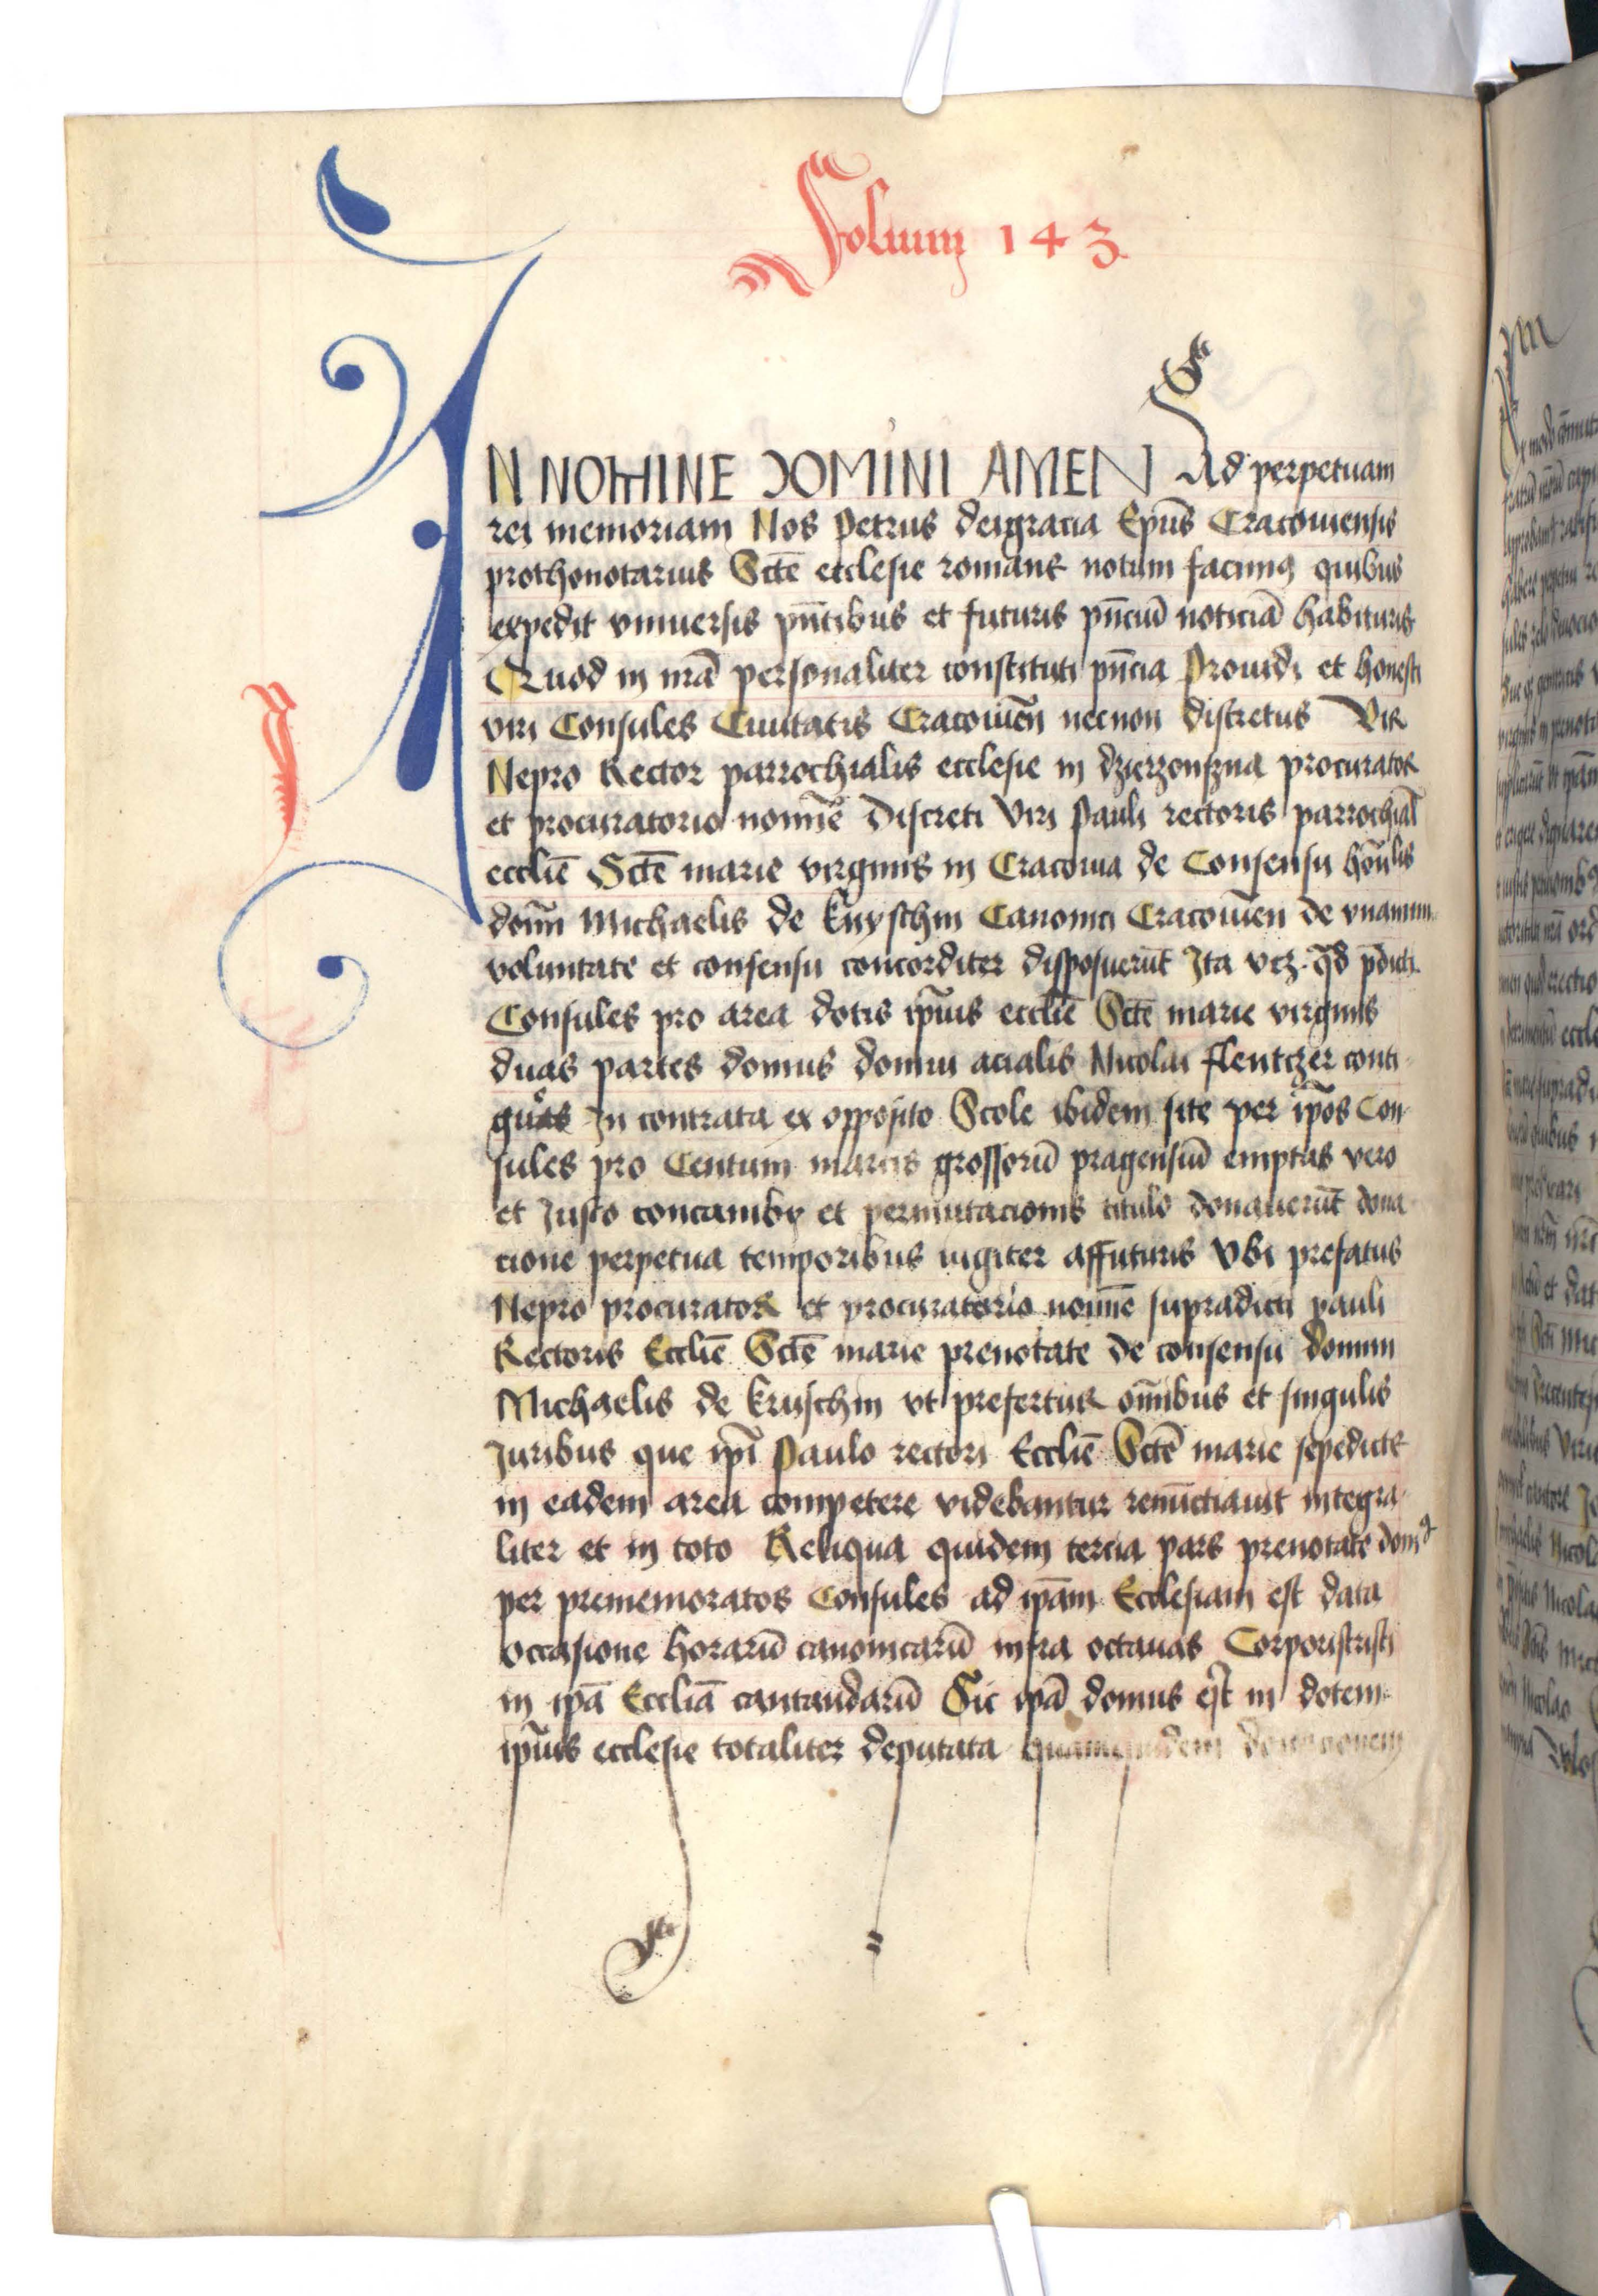 Folium 143
IN NOMINE DOMINI AMEN Ad perpetuam
rei memoriam Nos Petrus deigracia Ep̄us Cracouiensis
prothonotarius Sctē ecclesie romane notum facimꝰ quibus
expedit vniuersis pn̄tibus et futuris pn̄ciū noticiā habituris
Quod in nr̄ā personaliter constituti pn̄cia Prouidi et honesti
viri Consules Ciuitatis Cracouień necnon discretus Vir
Nepro Rector parrochialis ecclesie in dzierzonszna procurator
et procuratorio nomīe Discreti Viri Pauli rectoris parrochial̄
ecclīē Sctē marie virginis in Cracouia de Consensu hōn̄lis
domī Michaelis de Knyschin Canonici Cracouień de vnanimi
voluntate et consensu concorditer disposuerūt Ita vcz. qd̄ p̄dicti
Consules pro area dotis ip̄ius ecclīē Sctē marie virginis
duas partes domus domui acialis Nicolai flentczer conti
guas In contrata ex opposito Scole ibidem site per ip̄os Con
sules pro Centum marcis grossorū pragensiū emptas vero
et Justo concambӱ et permutacionis titulo donauerūt dona
cione perpetua temporibus iugiter affuturis Vbi prefatus
Nepro procurator et procuratorio nomīe supradicti pauli
Rectoris Ecclīē Sctē marie prenotate de consensu domini
Michaelis de kruschin vt prefertur om̄ibus et singulis
Juribus que ip̄i Paulo rectori Ecclīē Sctē marie sepedicte
in eadem area competere videbantur renūctiauit integra
liter et in toto Reliqua quidem tercia pars prenotate domꝰ
per prememoratos Consules ad ip̄am Ecclesiam est data
occasione horarū canonicarū infra octauas Corporiscristi
in ip̄ā Ecclīā cantandarū Sic ip̄ā domus est in dotem
ip̄ius ecclesie totaliter deputata quamquidem donacionem